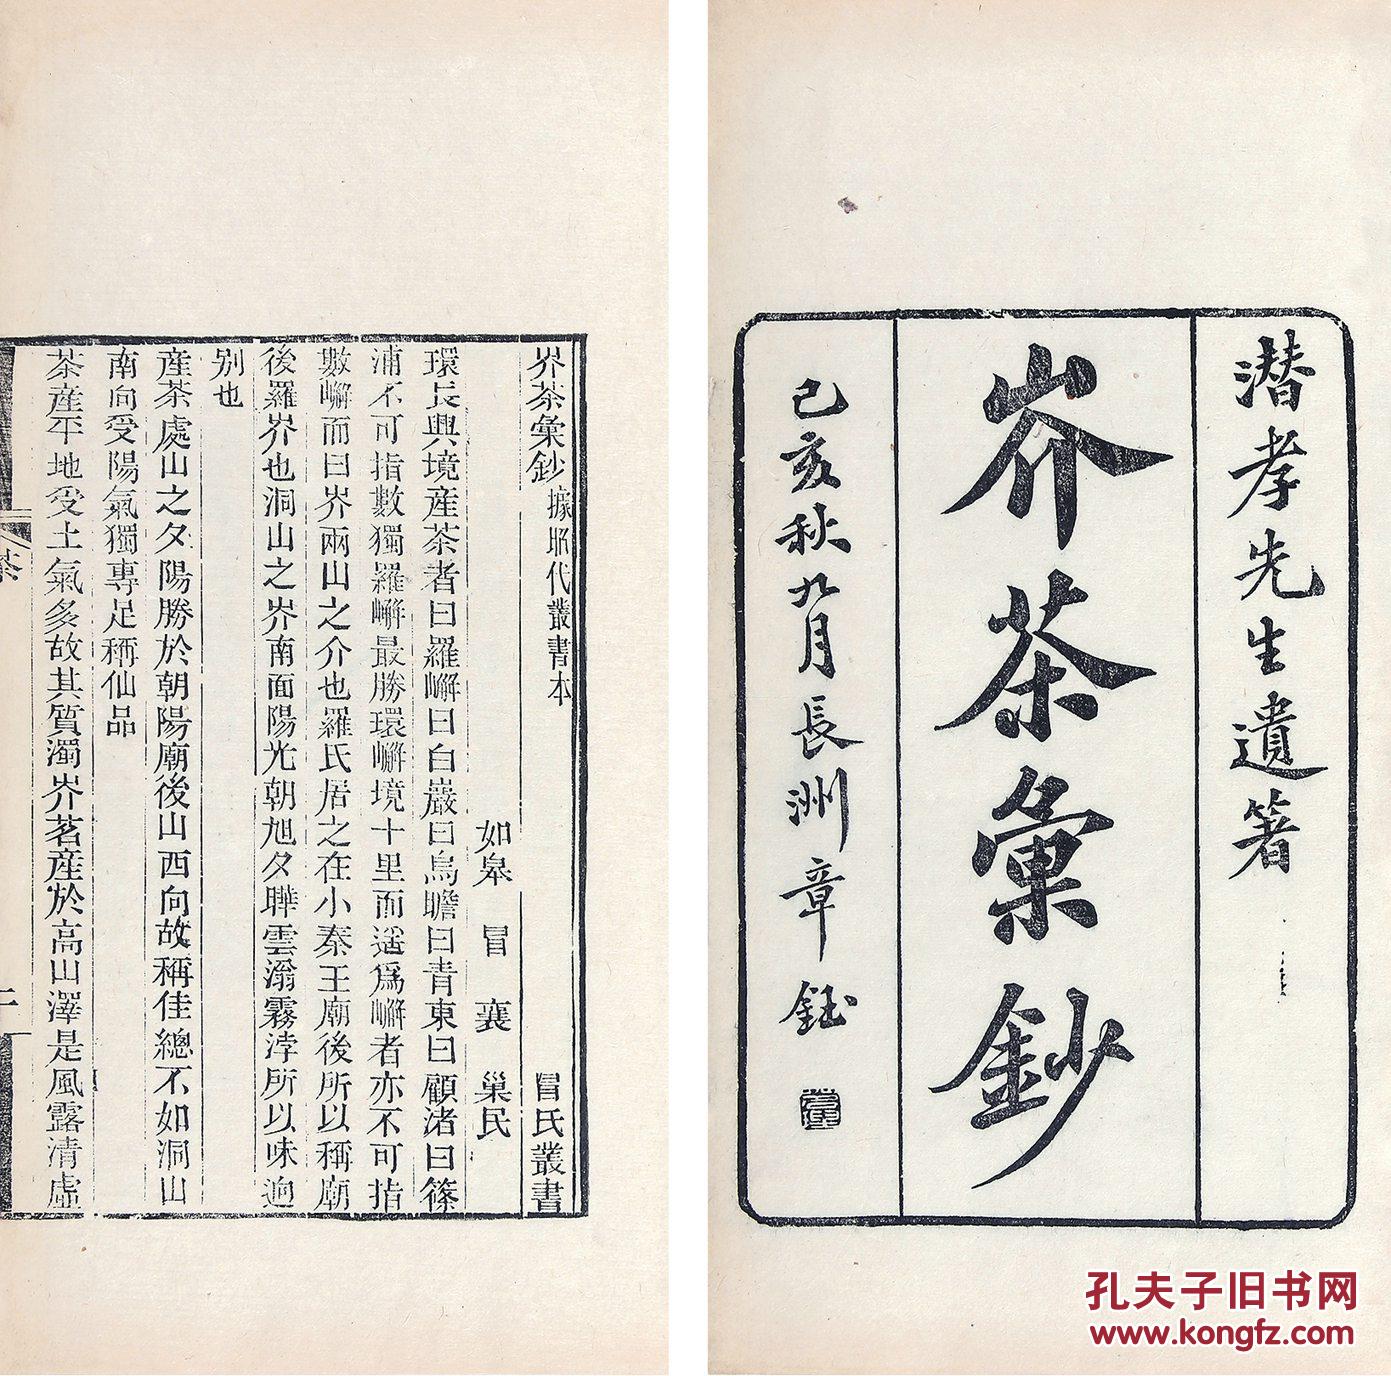 潜孝先生遺箸
岕茶彙鈔
己亥秋九月長洲章鈺
岕茶彙鈔 據昭代叢書本 冒氏叢書
如皋 冒 襄 巢民
環長興境産茶者曰羅嶰曰白巖曰烏瞻曰青東曰顧渚曰篠
浦不可指數獨羅嶰最勝環嶰境十里而遥爲嶰者亦不可指
數嶰而曰岕兩山之介也羅氏居之在小秦王廟後所以稱廟
後羅岕也洞山之岕南面陽光朝旭夕暉雲滃霧浡所以味迥
別也
産茶處山之夕陽勝於朝陽廟後山西向故稱佳總不如洞山
南向受陽氣獨專足稱仙品
茶産平地受土氣多故其質濁岕茗産於高山澤是風露清虛
茶
孔夫子旧书网
www.kongfz.com